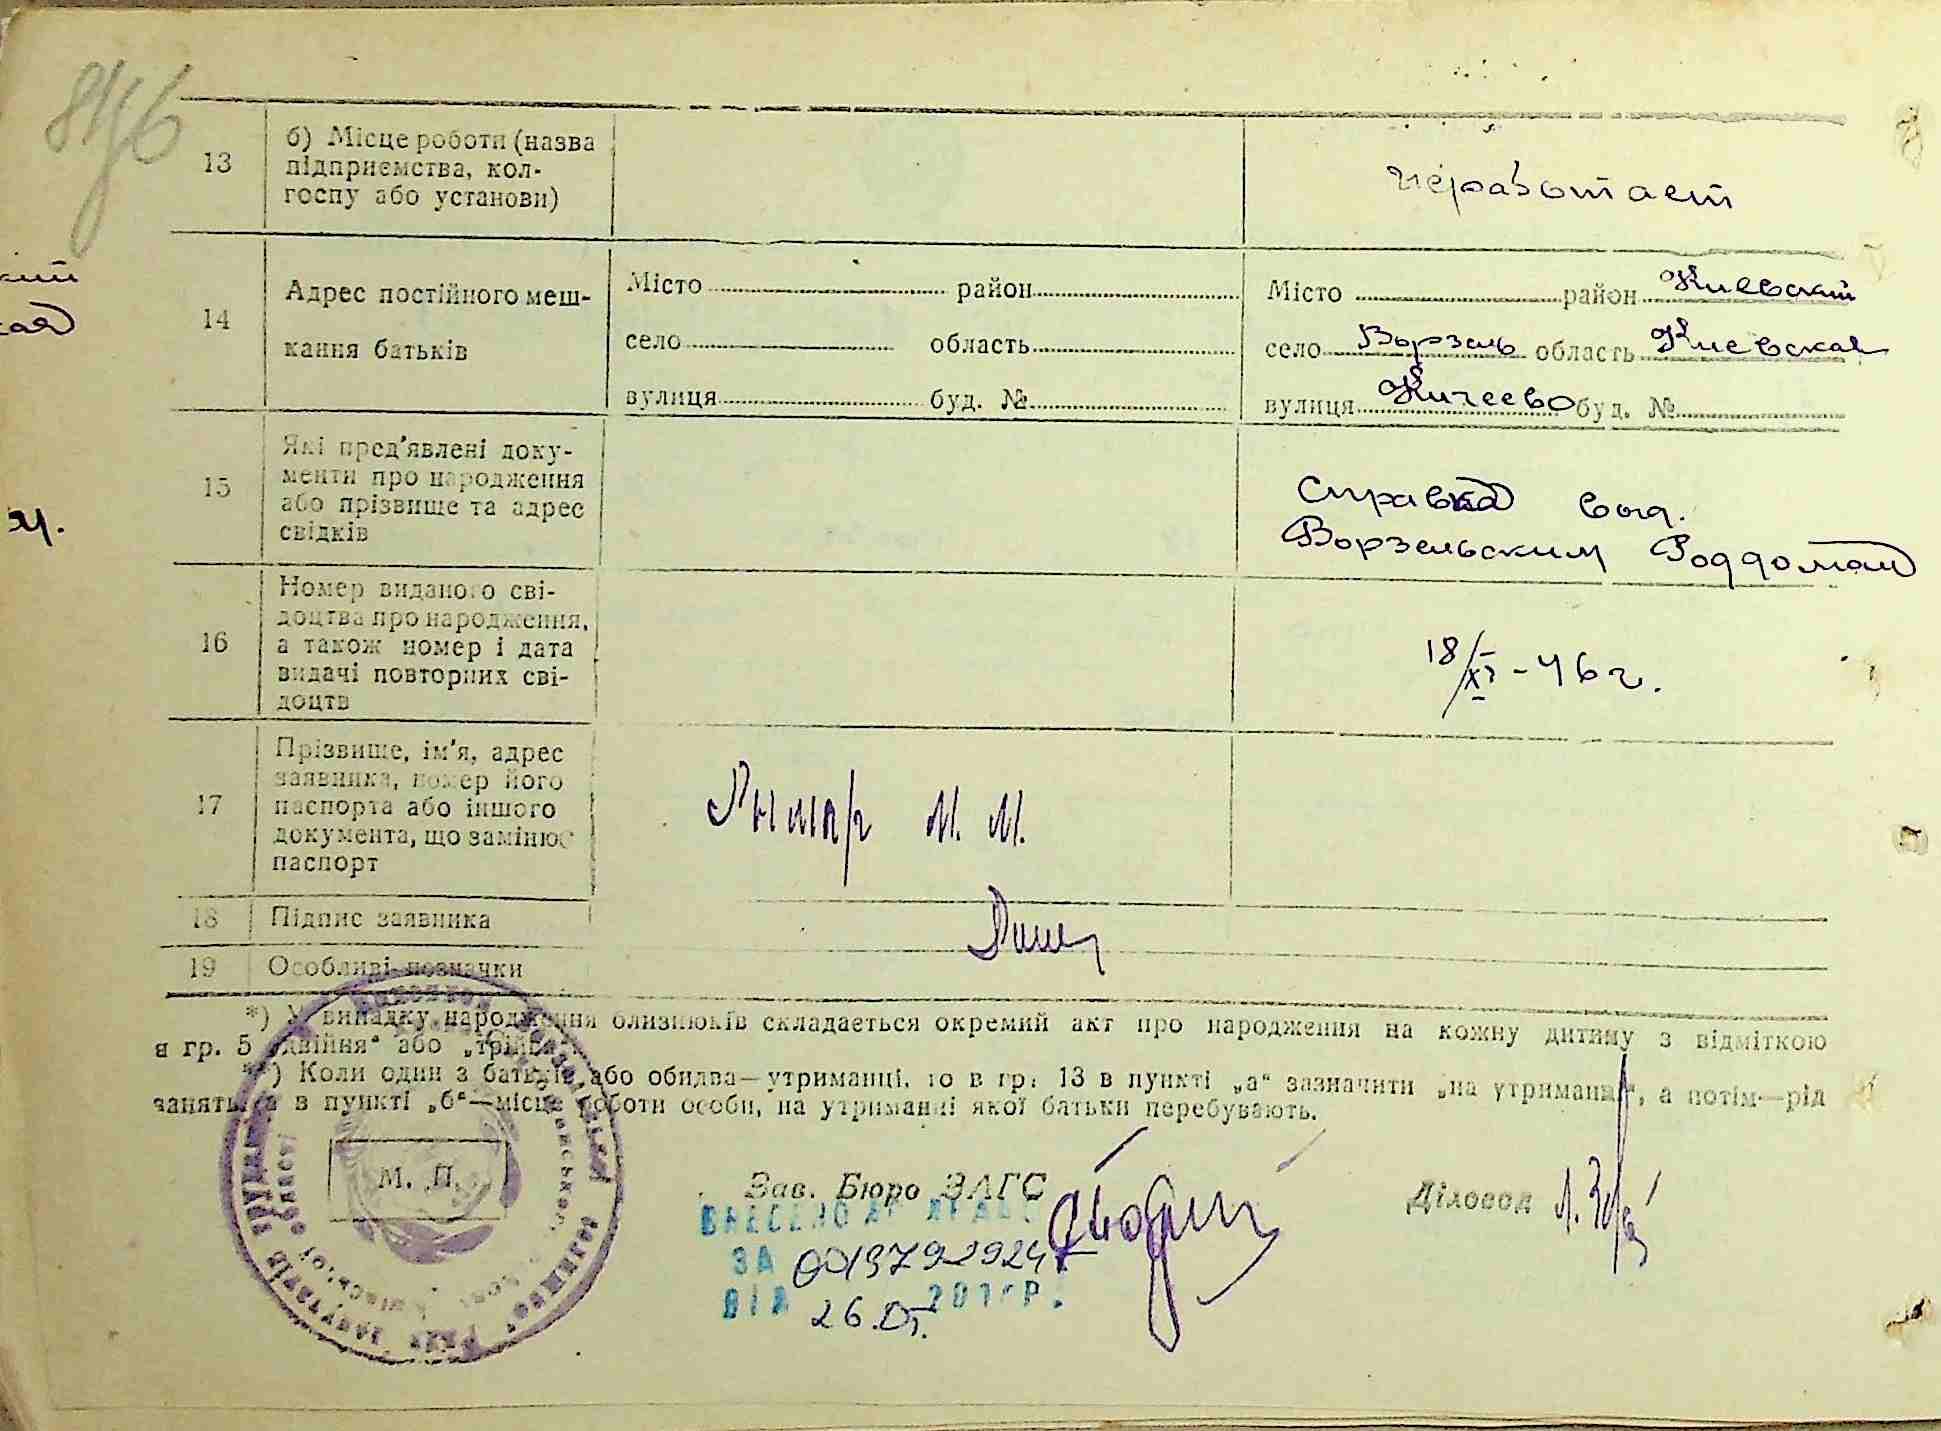 13
б) Місце роботи (назва
підприємства, кол-
госпу або установи)
неработает
14
Адрес постійного меш-
кання батьків
Місто район
село область
вулиця буд. №
Місто район Киевский
село Ворзель область Киевская
вулиця Кичеево буд. №
15
Які пред'явлені доку-
менти про народження
або прізвище та адрес
свідків
Справка выд.
Ворзельским Роддомом
16
Номер виданого сві-
доцтва про народження,
а також номер і дата
видачі повторних сві-
доцтв
18/XI-46 г.
17
Прізвище, ім'я, адрес
заявника, номер його
паспорта або іншого
документа, що замінює
паспорт
Рымар М. М.
18
Підпис заявника
19
Особливі позначки
*) У випадку народження близнюків складається окремий акт про народження на кожну дитину з відміткою
в гр. 5 „двійня“ або „трійня“.
**) Коли один з батьків або обидва—утриманці, то в гр. 13 в пункті „а“ зазначити „на утриманні“, а потім—рід
заняття, а в пункті „б“—місце роботи особи, на утриманні якої батьки перебувають.
М. П.
Зав. Бюро ЗАГС
Діловод
ВНЕСЕНО ДО ДРАЦС
ЗА 00137929244
ВІД 26.05.